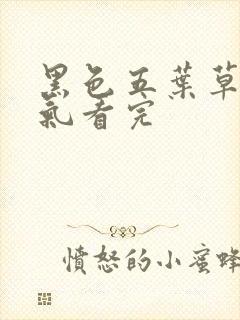 黑色五葉草
氣看完
憤怒的小蜜蜂